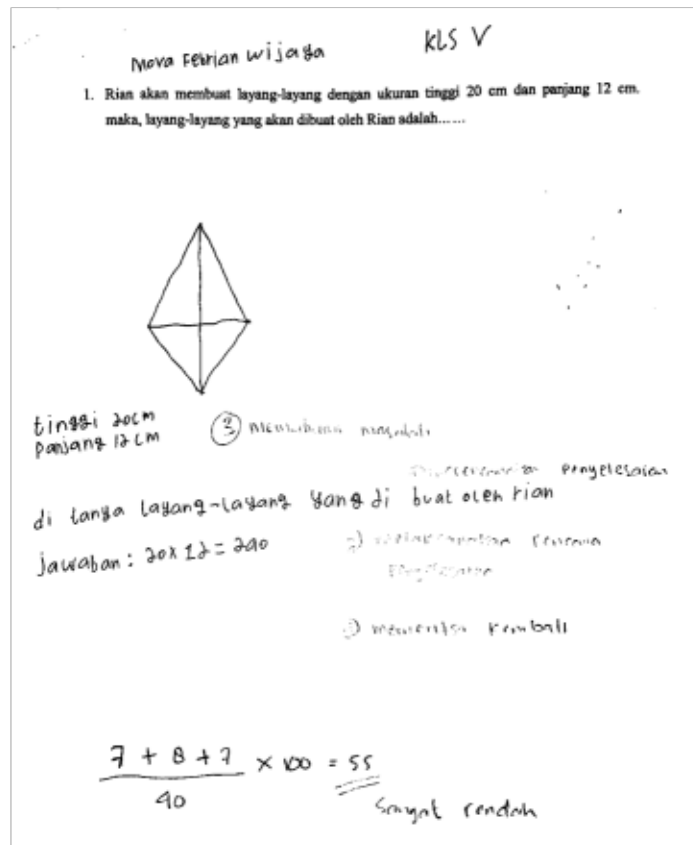 Nova Febrian wijaya
KLS V
1. Rian akan membuat layang-layang dengan ukuran tinggi 20 cm dan panjang 12 cm.
maka, layang-layang yang akan dibuat oleh Rian adalah......
tinggi 20cm
panjang 12 cm
3
penyelesaian
di tanya layang-layang yang di buat oleh rian
jawaban : 20 x 12 = 240
rencana
kembali
7 + 8 + 7
x 100 = 55
40
Sangat rendah